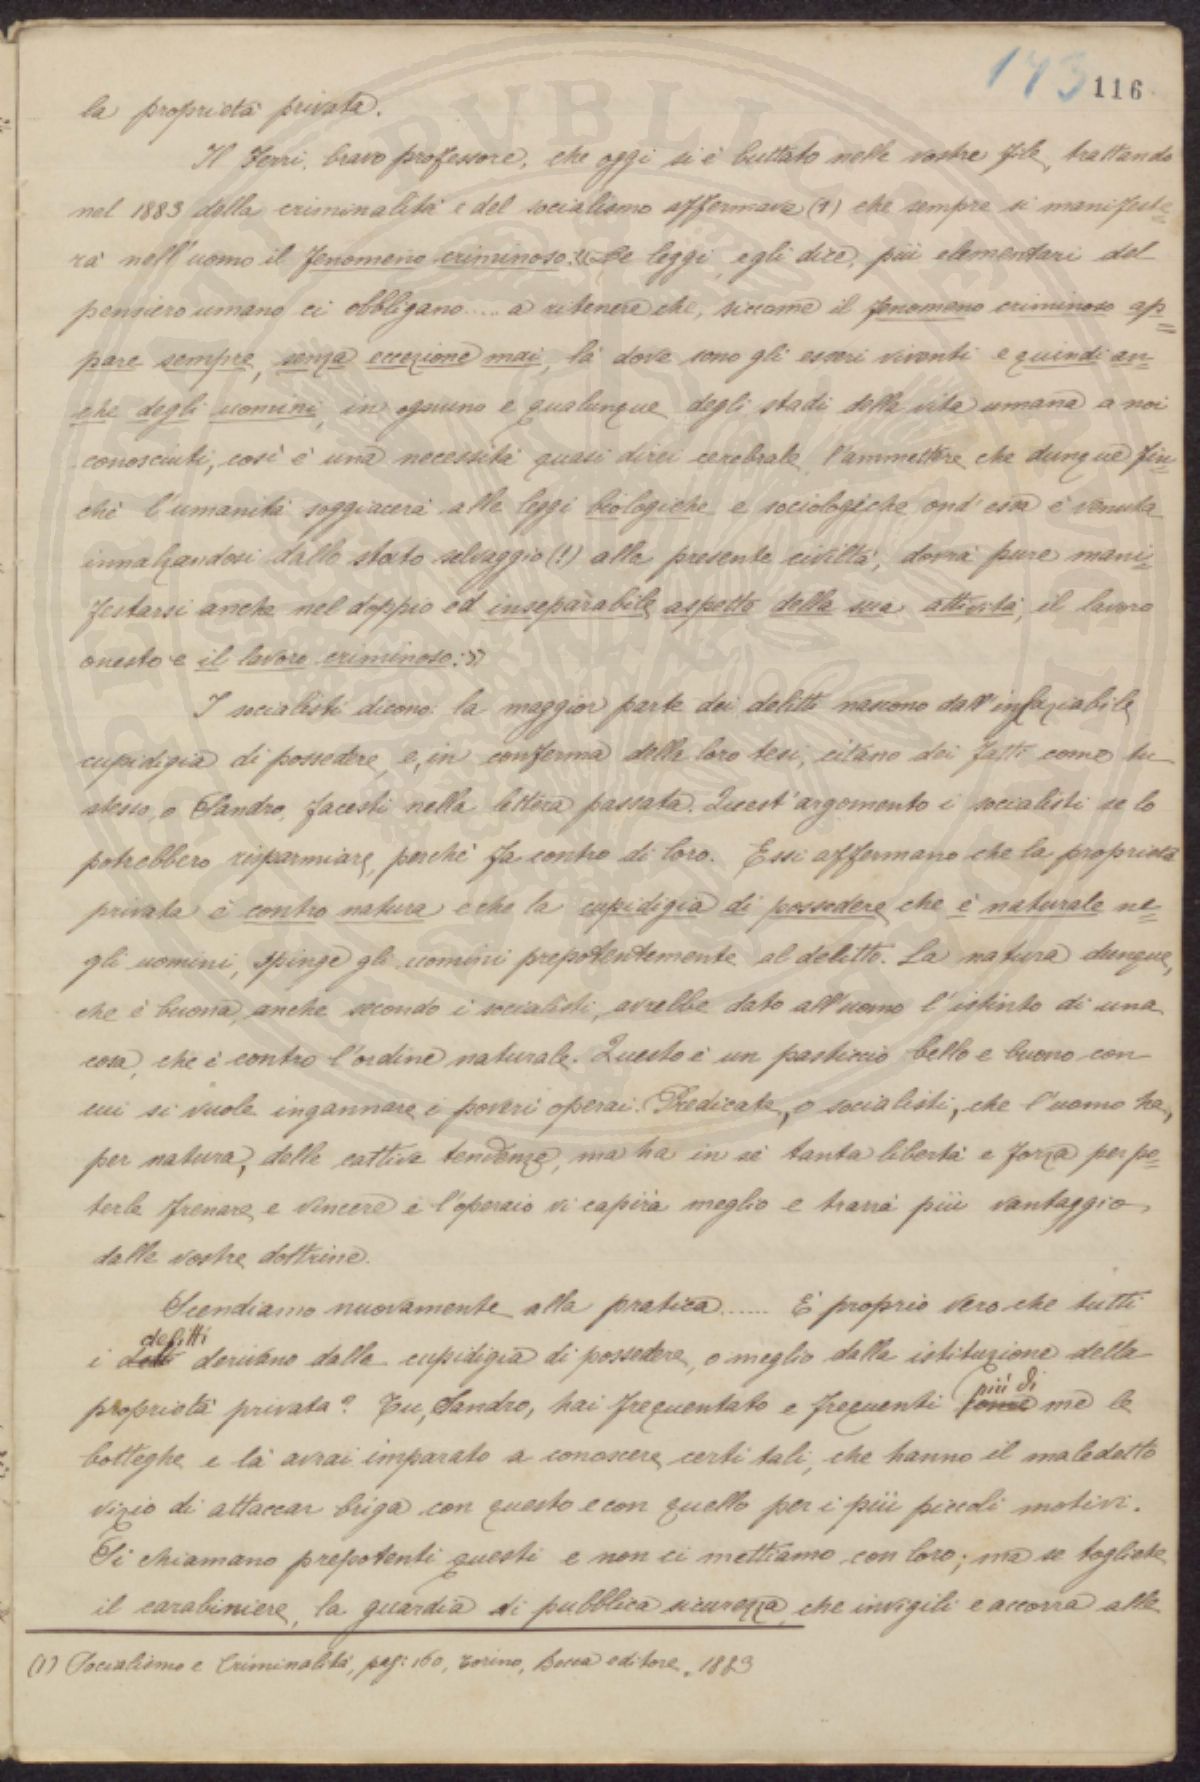 173 116
la proprietà privata.
Il Ferri, bravo professore, che oggi si è buttato nelle vostre file, trattando
nel 1883 della criminalità e del socialismo affermava (1) che sempre si manifeste=
rà nell'uomo il fenomeno criminoso: «Le leggi, egli dice, più elementari del
pensiero umano ci obbligano..... a ritenere che, siccome il fenomeno criminoso ap=
pare sempre, senza eccezione mai, là dove sono gli esseri viventi e quindi an=
che degli uomini, in ognuno e qualunque degli stadi della vita umana a noi
conosciuti, così è una necessità quasi direi cerebrale l'ammettere che dunque fin=
chè l'umanità soggiacerà alle leggi biologiche e sociologiche ond'essa è venuta
innalzandosi dallo stato selvaggio (!) alla presente civiltà, dovrà pure mani=
festarsi anche nel doppio ed inseparabile aspetto della sua attività, il lavoro
onesto e il lavoro criminoso:»
I socialisti dicono: la maggior parte dei delitti nascono dall'insaziabile
cupidigia di possedere, e, in conferma della loro tesi, citano dei fatti come tu
stesso, o Sandro, facesti nella lettera passata. Quest'argomento i socialisti se lo
potrebbero risparmiare, perchè fa contro di loro. Essi affermano che la proprietà
privata è contro natura e che la cupidigia di possedere che è naturale ne=
gli uomini, spinge gli uomini prepotentemente al delitto. La natura dunque,
che è buona, anche secondo i socialisti, avrebbe dato all'uomo l'istinto di una
cosa, che è contro l'ordine naturale. Questo è un pasticcio bello e buono con
cui si vuole ingannare i poveri operai. Predicate, o socialisti, che l'uomo ha,
per natura, delle cattive tendenze, ma ha in sè tanta libertà e forza per po=
terle frenare e vincere e l'operaio vi capirà meglio e trarrà più vantaggio
dalle vostre dottrine.
Scendiamo nuovamente alla pratica...... È proprio vero che tutti
i delitti derivano dalla cupidigia di possedere, o meglio dalla istituzione della
proprietà privata? Tu, Sandro, hai frequentato e frequenti più di me le
botteghe e là avrai imparato a conoscere certi tali, che hanno il maledetto
vizio di attaccar briga con questo e con quello per i più piccoli motivi.
Si chiamano prepotenti questi e non ci mettiamo con loro; ma se togliete
il carabiniere, la guardia di pubblica sicurezza, che invigili e accorra alle
(1) Socialismo e Criminalità, pag: 160, Torino, Bocca editore, 1883